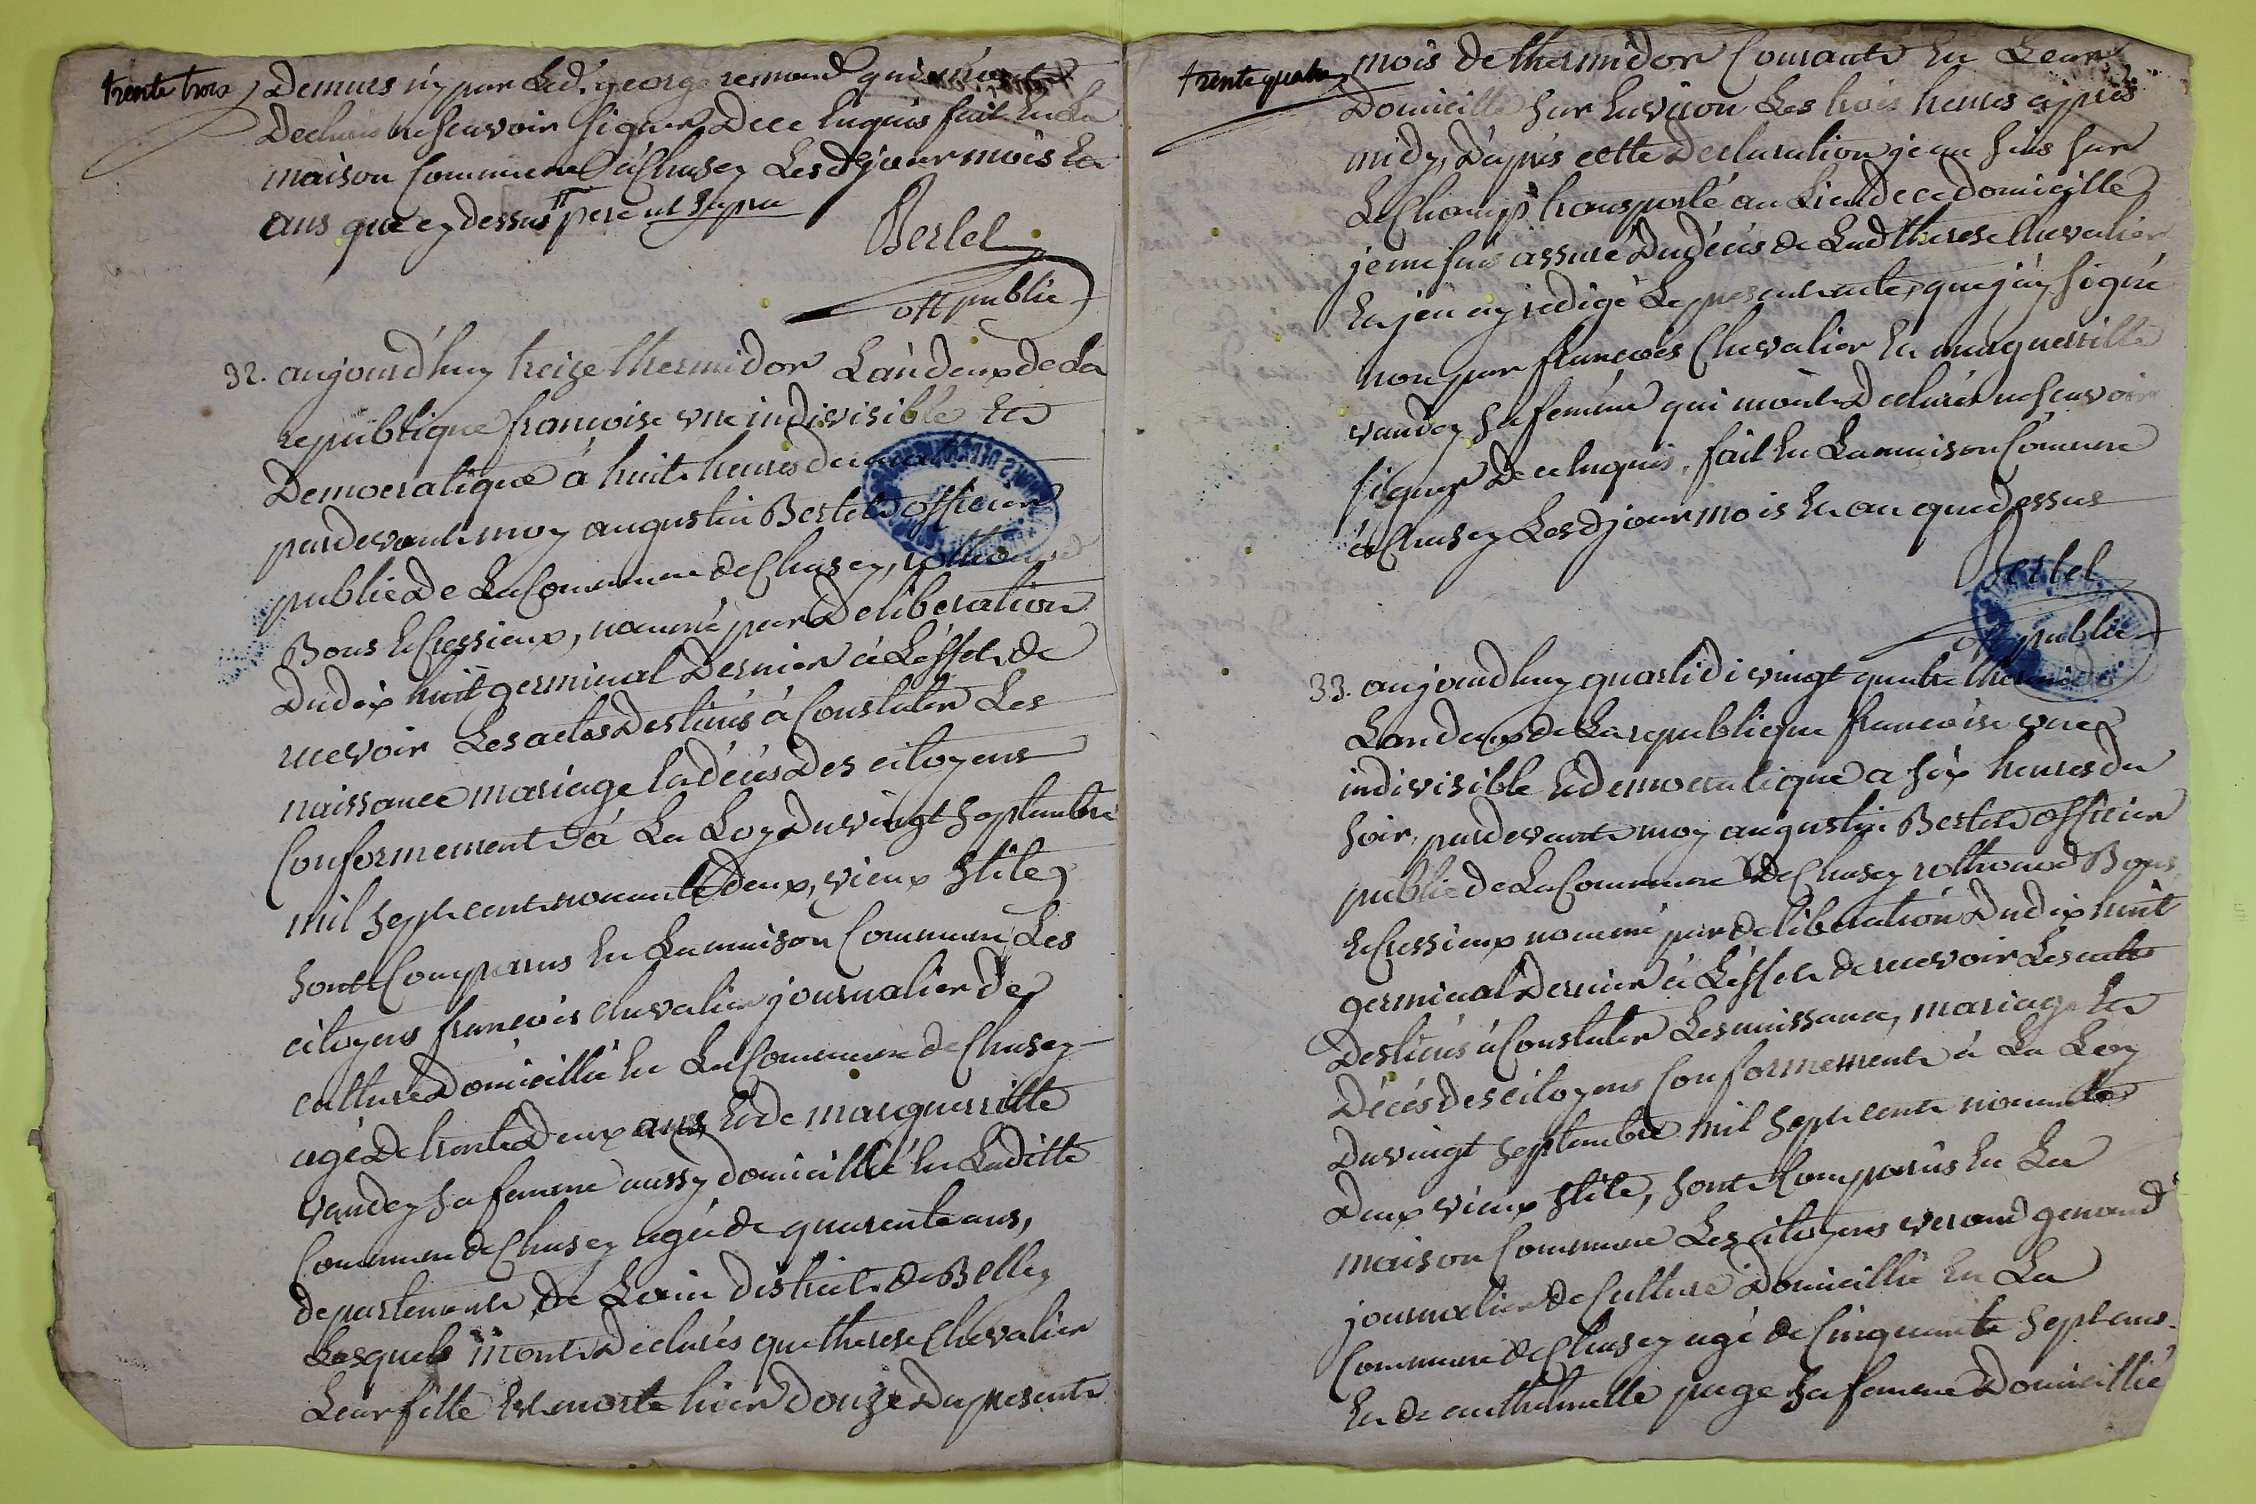 trente trois
Demurs n'y par Led. george remond qui
Declaré ne scavoir signer De ce Enquis fait En La
maison Commune à Chasey Lesd. jour mois Et
ans que cy dessus pere ut supra
Bertet
off publie
32. aujourd'huy treize thermidor L'an deux de La
republique françoise une indivisible Et
Democratique à huit heures du
pardevant moy augustin Bertet officier
public De La Commune de Chasey, rothonod
Bons Et Cressieux, nommé par Deliberation
Du dix huit germinal Dernier à L'effet de
recevoir Les actes Destinés à Constater Les
naissance mariage Et décés Des citoyens
Conformement à La Loy Du vingt septembre
mil sept cent nonante deux, vieux stile
sont Comparus En La maison Commune Les
citoyens françois chevalier journalier de
culture Domicillié En La Commune de Chasey
agé De trente Deux ans, Et de margueritte
vaudey sa femme aussy domicillié En Laditte
Commune de Chasey agée de quarente ans,
departement de Lain district de Belley
Lesquels m'ont Declarés que therese Chevalier
Leur fille Est morte hier Douze Du present
trente quatre
mois de thermidor Courant En Leur
Domicille sur Environ Les trois heures après
midy, D'après cette Declaration je me suis sur
Le Champ transporté au Lieu de ce domicille
je me suis assuré Du décés de Lad. therese Chevalier
Et j'en ay redigé Le present acte, que j'ay signé
non par françois Chevalier Et margueritte
vaudey sa femme qui m'ont Declarés ne scavoir
signer De ce Enquis. fait En La maison Commune
à Chasey Lesd. jour mois Et an que dessus
Bertet
off publie
33. aujourdhuy quartidi vingt quatre thermidor
L'an deux de La republique françoise une
indivisible Et democratique a six heures du
soir, pardevant moy augustin Bertet officier
public de La Commune De Chasey rothonod Bons
Et Cressieux nommé par deliberation Du dix huit
germinal Dernier à L'effet de recevoir Les actes
Destinés à Constater Les naissance, mariage Et
Décés Des citoyens Conformement à La Loy
Du vingt septembre mil sept cent nonante
Deux vieux stile, sont Comparus En La
maison Commune Les citoyens verand genand
journalier de Culture Domicillié En La
Commune de Chasey agé de Cinquante sept ans.
Et de anthelmette puge sa femme Domicillié